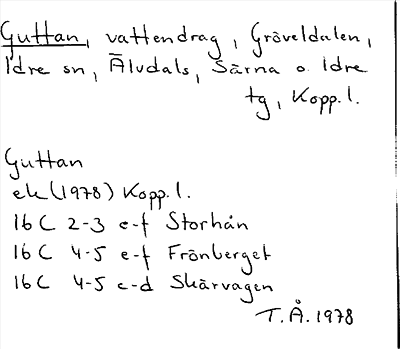 Guttan, vattendrag, Gröveldalen,
Idre sn, Älvdals, Särna o. Idre
tg, Kopp. l.
Guttan
ek (1978) Kopp. l.
16 C 2-3 e-f Storhån
16 C 4-5 e-f Frönberget
16 C 4-5 c-d Skärvagen
T.Å. 1978